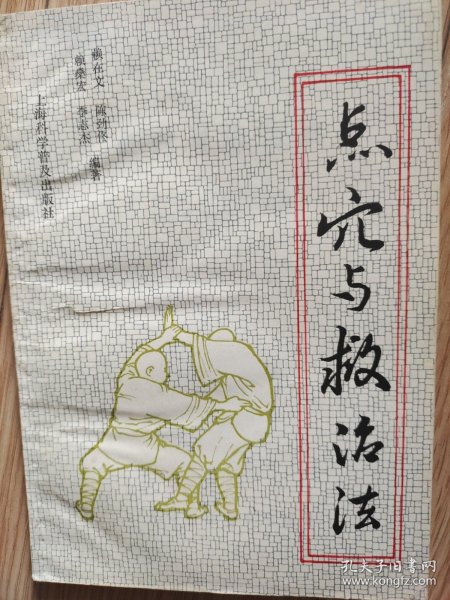 点穴与救治法
赖在文 陈 编著
赖荣宏 李志杰
上海科学普及出版社
孔夫子旧书网
www.kongfz.com